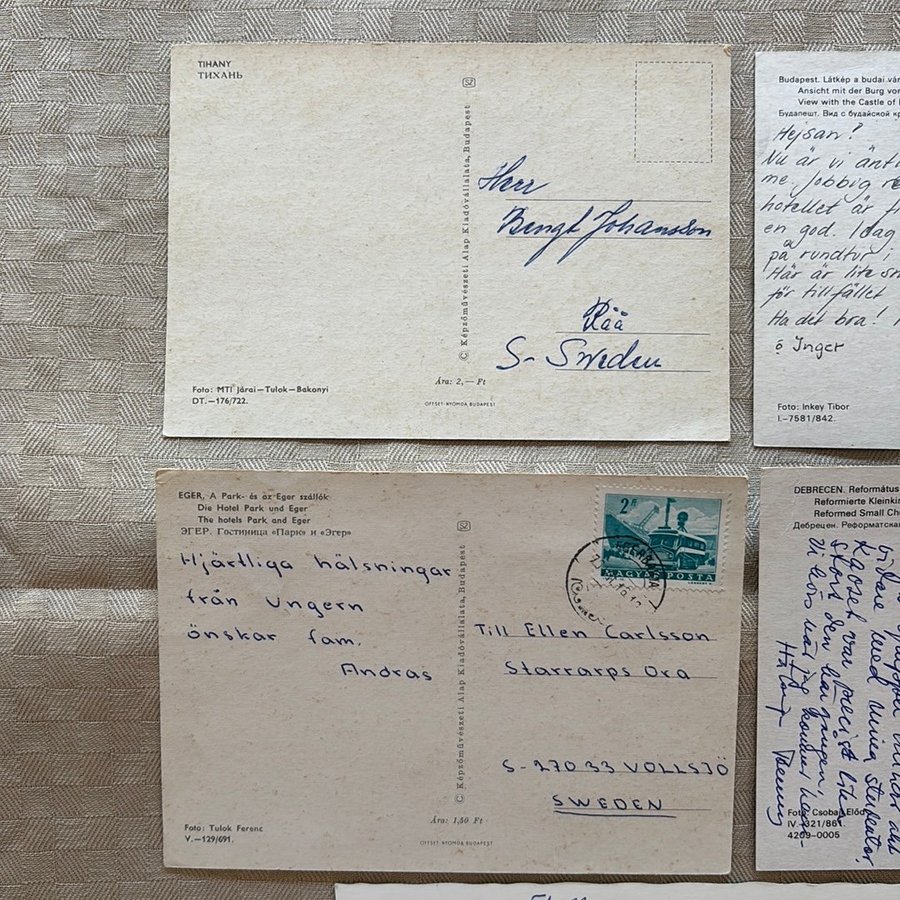 TIHANY
ТИХАНЬ
© Képzőművészeti Alap Kiadóvállalata, Budapest
Herr
Bengt Johansson
Råå
S- Sweden
Foto: MTI Járai—Tulok—Bakonyi
DT.—176/722.
Ára: 2,— Ft
OFFSET-NYOMDA BUDAPEST
Budapest. Látkép a budai vár
Ansicht mit der Burg vo
View with the Castle of
Будапешт. Вид с будайской кр
Hejsan!
Nu är vi änt
me. Jobbig re
hotellet är
en god. Idag
på rundtur i
Här är lite
för tillfället
Ha det bra!
Inger
Foto: Inkey Tibor
I.—7581/842.
EGER, A Park- és az Eger szállók
Die Hotel Park und Eger
The hotels Park and Eger
ЭГЕР. Гостиница «Парк» и «Эгер»
Hjärtliga hälsningar
från Ungern
önskar fam.
Andras
© Képzőművészeti Alap Kiadóvállalata, Budapest
2 Ft
MAGYAR POSTA
Till Ellen Carlsson
Starrarps Ora
S-270 33 VOLLSJÖ
SWEDEN
Foto: Tulok Ferenc
V.—129/691.
Ára: 1,50 Ft
OFFSET-NYOMDA BUDAPEST
DEBRECEN. Református
Reformierte Kleinki
Reformed Small Ch
Дебрецен. Реформатска
vidare med mina
var precis lika
stort den här gången,
Vi hörs när jag kommer hem
Foto: Csobai Előd
IV. 321/861
4209-0005